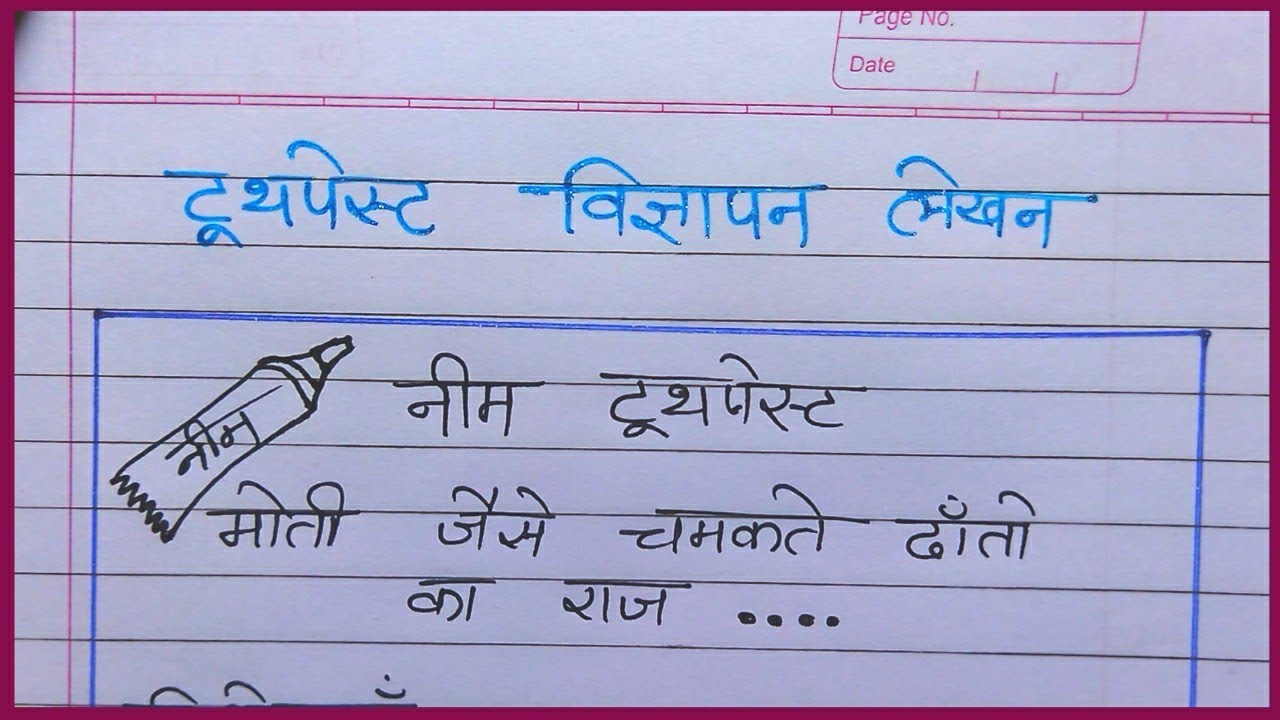 Page No.
Date
टूथपेस्ट विज्ञापन लेखन
नीम टूथपेस्ट
नीम
मोती जैसे चमकते दाँतो
का राज ....